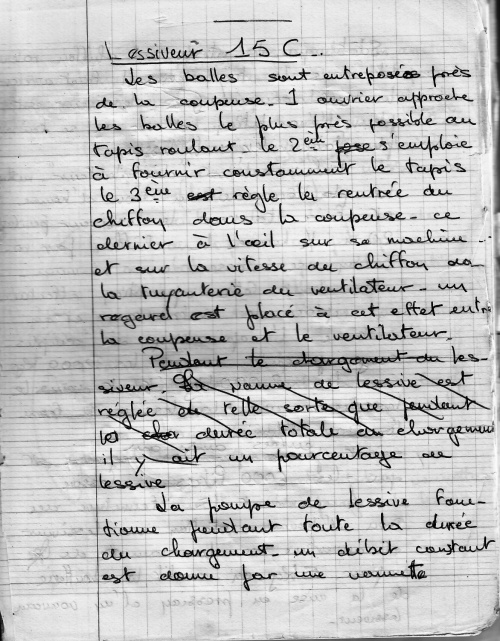 Lessiveur 15 C.
Les balles sont entreposées près
de la coupeuse. 1 ouvrier approche
les balles le plus près possible au
tapis roulant le 2ème s'emploie
à fournir constamment le tapis
le 3ème est règle la rentrée du
chiffon dans la coupeuse. ce
dernier à l'oeil sur sa machine
et sur la vitesse du chiffon da
la tuyauterie du ventilateur. un
regard est placé à cet effet entre
la coupeuse et le ventilateur.
Pendant le chargement du les-
siveur. La vanne de lessive est
réglée de telle sorte que pendant
la durée totale du chargement
il y ait un pourcentage de
lessive
La pompe de lessive fonc-
tionne pendant toute la durée
du chargement. un débit constant
est donné par une vannette